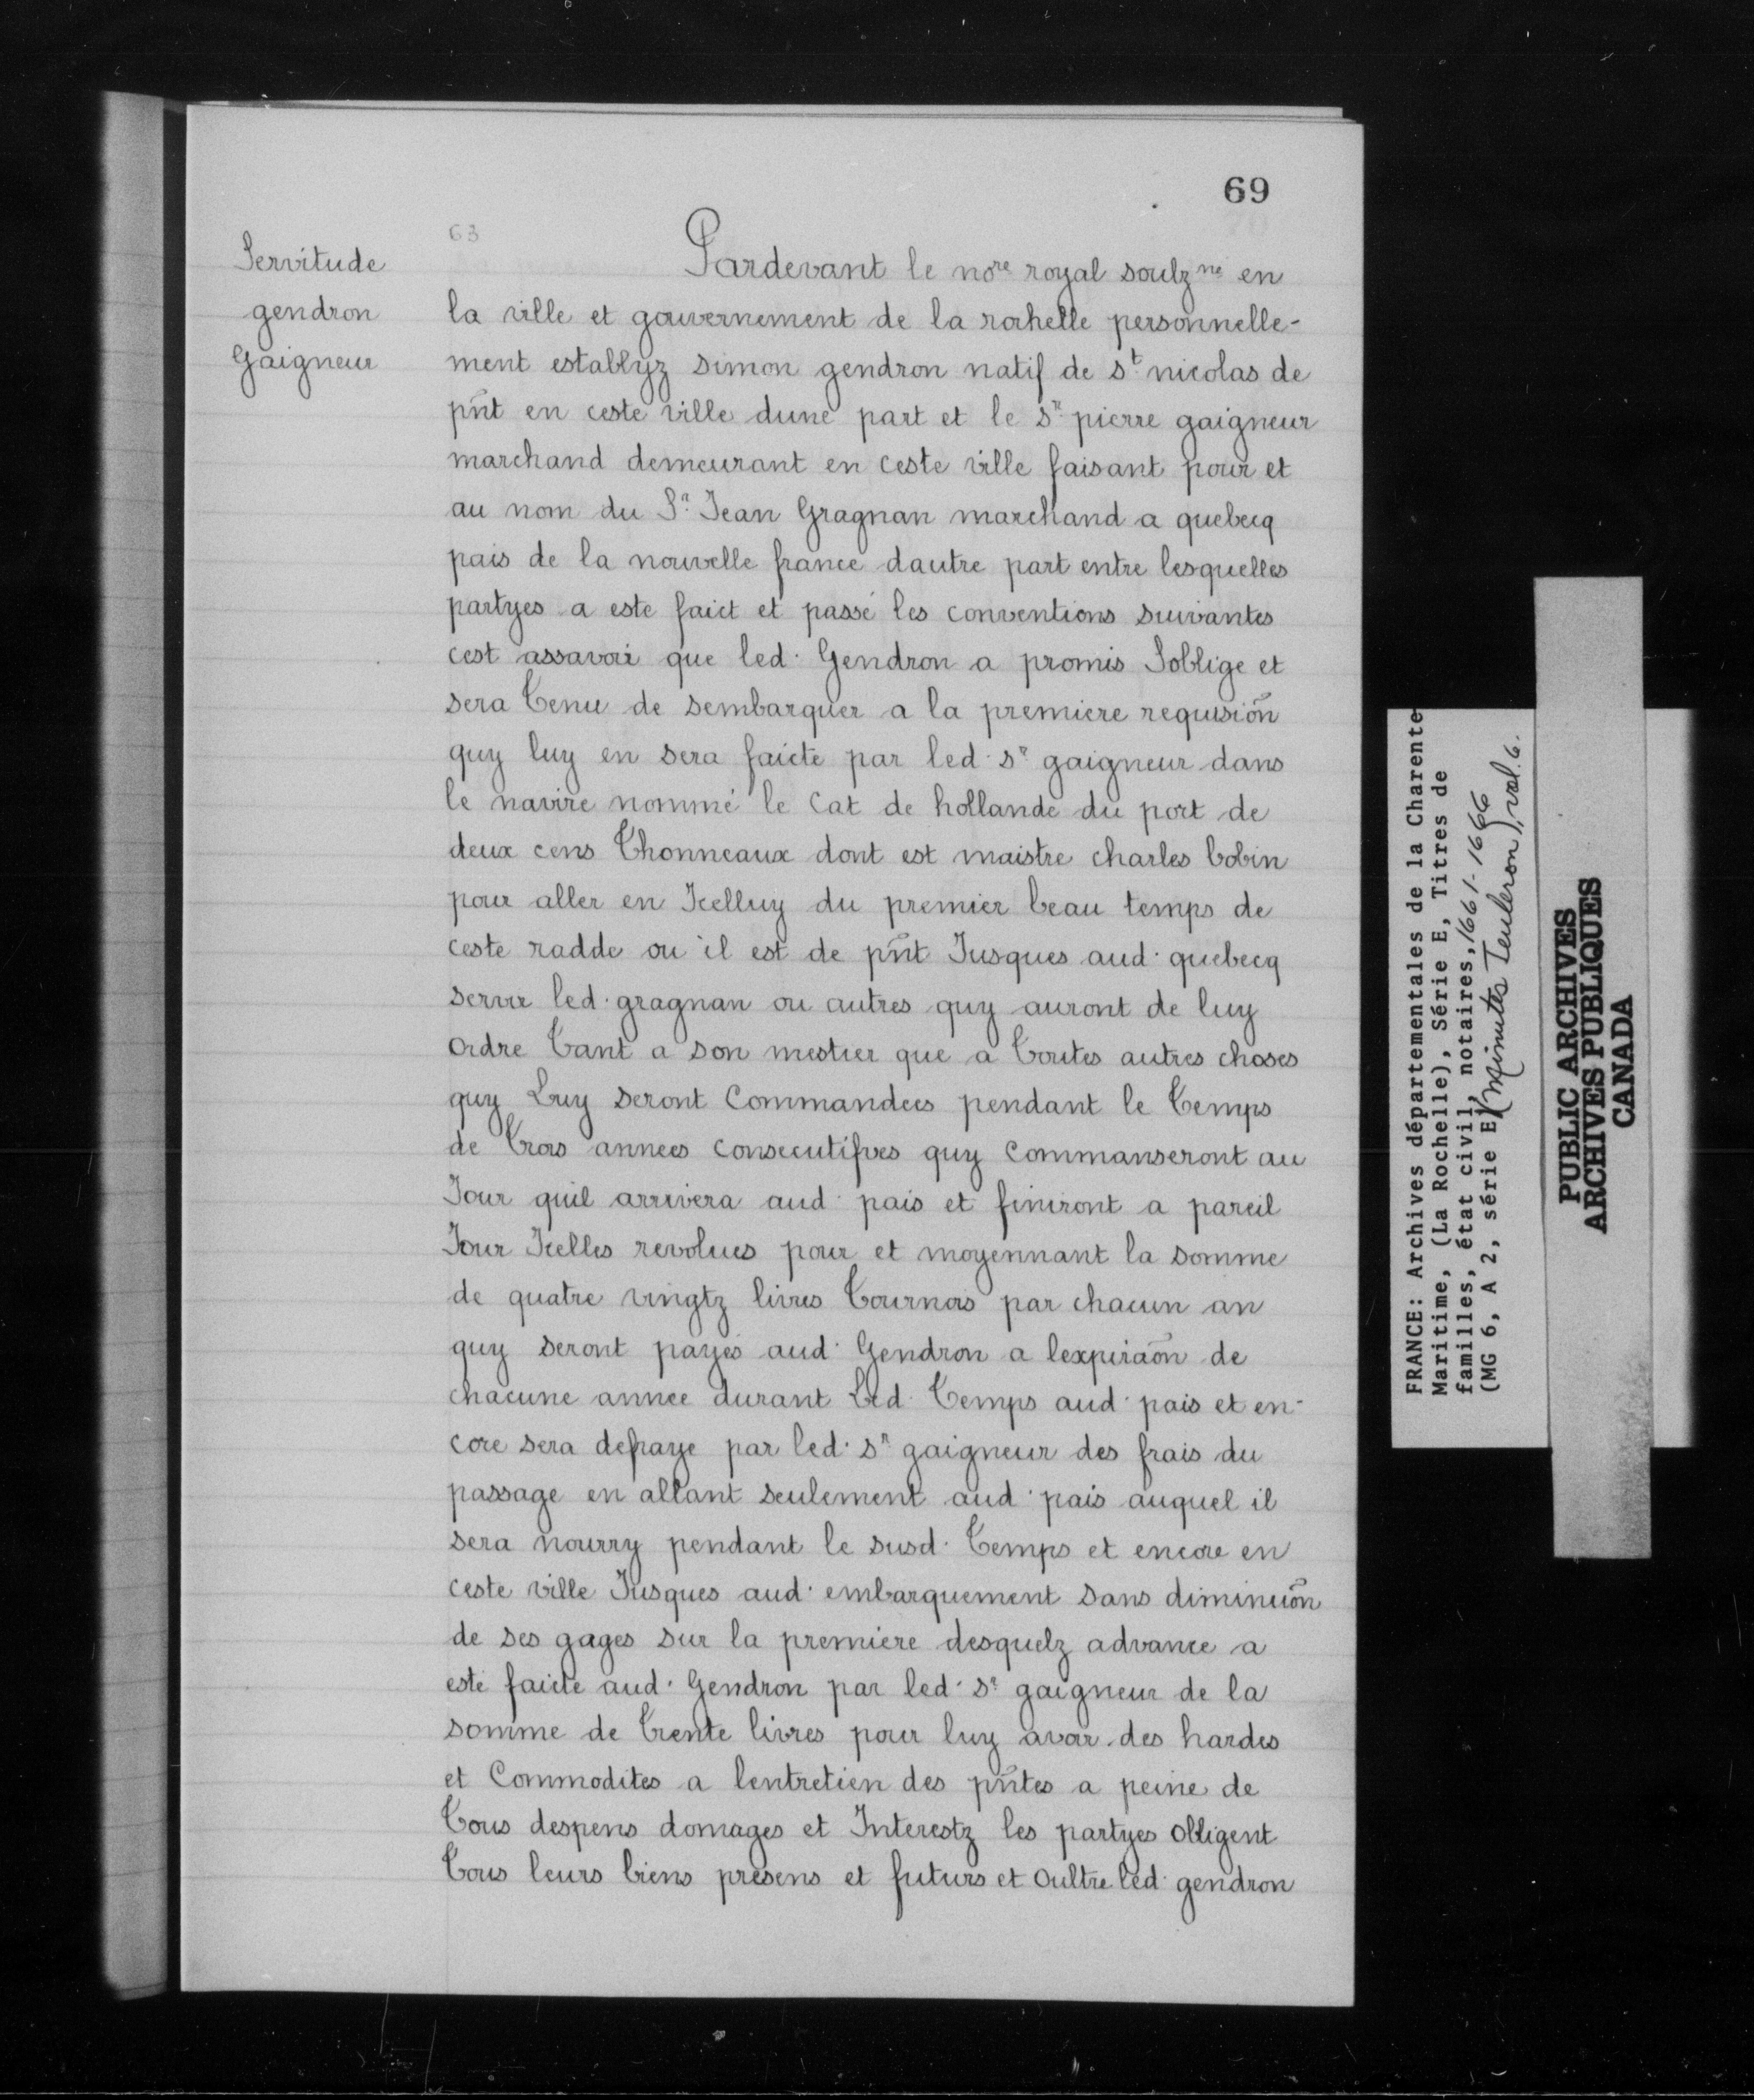 69
63
Servitude
gendron
Gaigneur
Pardevant le no.re royal soulz.ne en
la ville et gouvernement de la rochelle personnelle-
ment establyz simon gendron natif de s.t nicolas de
pnt en ceste ville dune part et le s.r pierre gaigneur
marchand demeurant en ceste ville faisant pour et
au nom du S.r Jean Gragnan marchand a quebecq
pais de la nouvelle france dautre part entre lesquelles
partyes a este faict et passé les conventions suivantes
cest assavoir que led. Gendron a promis Soblige et
sera tenu de sembarquer a la premiere requisiõn
quy luy en sera faicte par led. s.r gaigneur dans
le navire nommé le Cat de hollande du port de
deux cens Thonneaux dont est maistre charles bobin
pour aller en Icelluy du premier beau temps de
ceste radde ou il est de pñt Jusques aud. quebecq
servir led. gragnan ou autres quy auront de luy
ordre tant a son mestier que a toutes autres choses
quy Luy seront Commandees pendant le temps
de trois annees consecutifves quy commanseront au
Jour quil arrivera aud. pais et finiront a pareil
Jour Icelles revolues pour et moyennant la somme
de quatre vingtz livres tournois par chacun an
quy seront payés aud. Gendron a lexpiraõn de
chacune annee durant Led. temps aud. pais et en-
core sera defraye par led. s.r gaigneur des frais du
passage en allant seulement aud. pais auquel il
sera nourry pendant le susd. temps et encore en
ceste ville Jusques aud. embarquement sans diminuõn
de ses gages sur la premiere desquelz advance a
esté faicte aud. Gendron par led. s.r gaigneur de la
somme de trente livres pour luy avoir des hardes
et Commodites a lentretien des pñtes a peine de
tous despens domages et Interestz les partyes obligent
tous leurs biens presens et futurs et oultre led. gendron
FRANCE: Archives départementales de la Charente
Maritime, (La Rochelle), Série E, Titres de
familles, état civil, notaires, 1661-1666
(MG 6, A 2, série E) (Minutes Teuleron), vol. 6.
PUBLIC ARCHIVES
ARCHIVES PUBLIQUES
CANADA